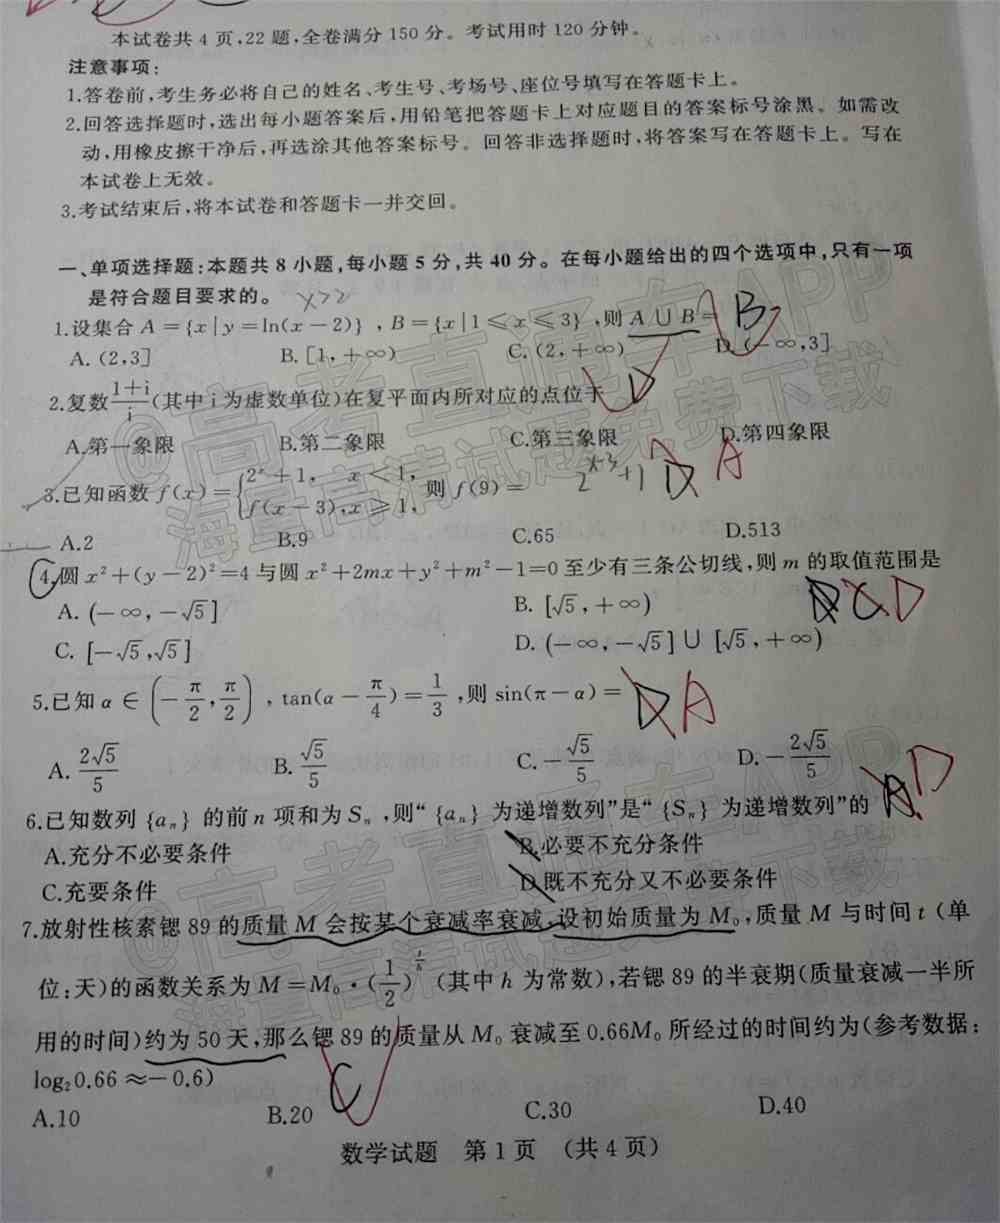 本试卷共 4 页,22 题,全卷满分 150 分。考试用时 120 分钟。
注意事项:
1.答卷前,考生务必将自己的姓名、考生号、考场号、座位号填写在答题卡上。
2.回答选择题时,选出每小题答案后,用铅笔把答题卡上对应题目的答案标号涂黑。如需改
动,用橡皮擦干净后,再选涂其他答案标号。回答非选择题时,将答案写在答题卡上。写在
本试卷上无效。
3.考试结束后,将本试卷和答题卡一并交回。
一、单项选择题:本题共 8 小题,每小题 5 分,共 40 分。在每小题给出的四个选项中,只有一项
是符合题目要求的。 x>2
1.设集合 A={x|y=ln(x-2)},B={x|1⩽x⩽3},则 A∪B= B
A.(2,3] B.[1,+∞) C.(2,+∞) D.(-∞,3]
2.复数 (1+i)/i (其中 i 为虚数单位)在复平面内所对应的点位于 D
A.第一象限 B.第二象限 C.第三象限 D.第四象限
3.已知函数 f(x)={2ˣ+1, x<1, f(x-3),x⩾1, 则 f(9)= 2ˣ⁻³+1 D A
A.2 B.9 C.65 D.513
4.圆 x²+(y-2)²=4 与圆 x²+2mx+y²+m²-1=0 至少有三条公切线,则 m 的取值范围是
A.(-∞,-√5] B.[√5,+∞) D C D
C.[-√5,√5] D.(-∞,-√5]∪[√5,+∞)
5.已知 α∈(-π/2,π/2),tan(α-π/4)=1/3,则 sin(π-α)= D A
A. 2√5/5 B. √5/5 C.-√5/5 D.-2√5/5
6.已知数列{aₙ}的前 n 项和为 Sₙ,则“{aₙ}为递增数列”是“{Sₙ}为递增数列”的 A D
A.充分不必要条件 B.必要不充分条件
C.充要条件 D.既不充分又不必要条件
7.放射性核素锶 89 的质量 M 会按某个衰减率衰减,设初始质量为 M₀,质量 M 与时间 t (单
位:天)的函数关系为 M=M₀·(1/2)^(t/h) (其中 h 为常数),若锶 89 的半衰期(质量衰减一半所
用的时间)约为 50 天,那么锶 89 的质量从 M₀ 衰减至 0.66M₀ 所经过的时间约为(参考数据:
log₂0.66≈-0.6) C
A.10 B.20 C.30 D.40
数学试题 第 1 页 (共 4 页)
@高考直通车APP
海量高清试题免费下载
@高考直通车APP
海量高清试题免费下载